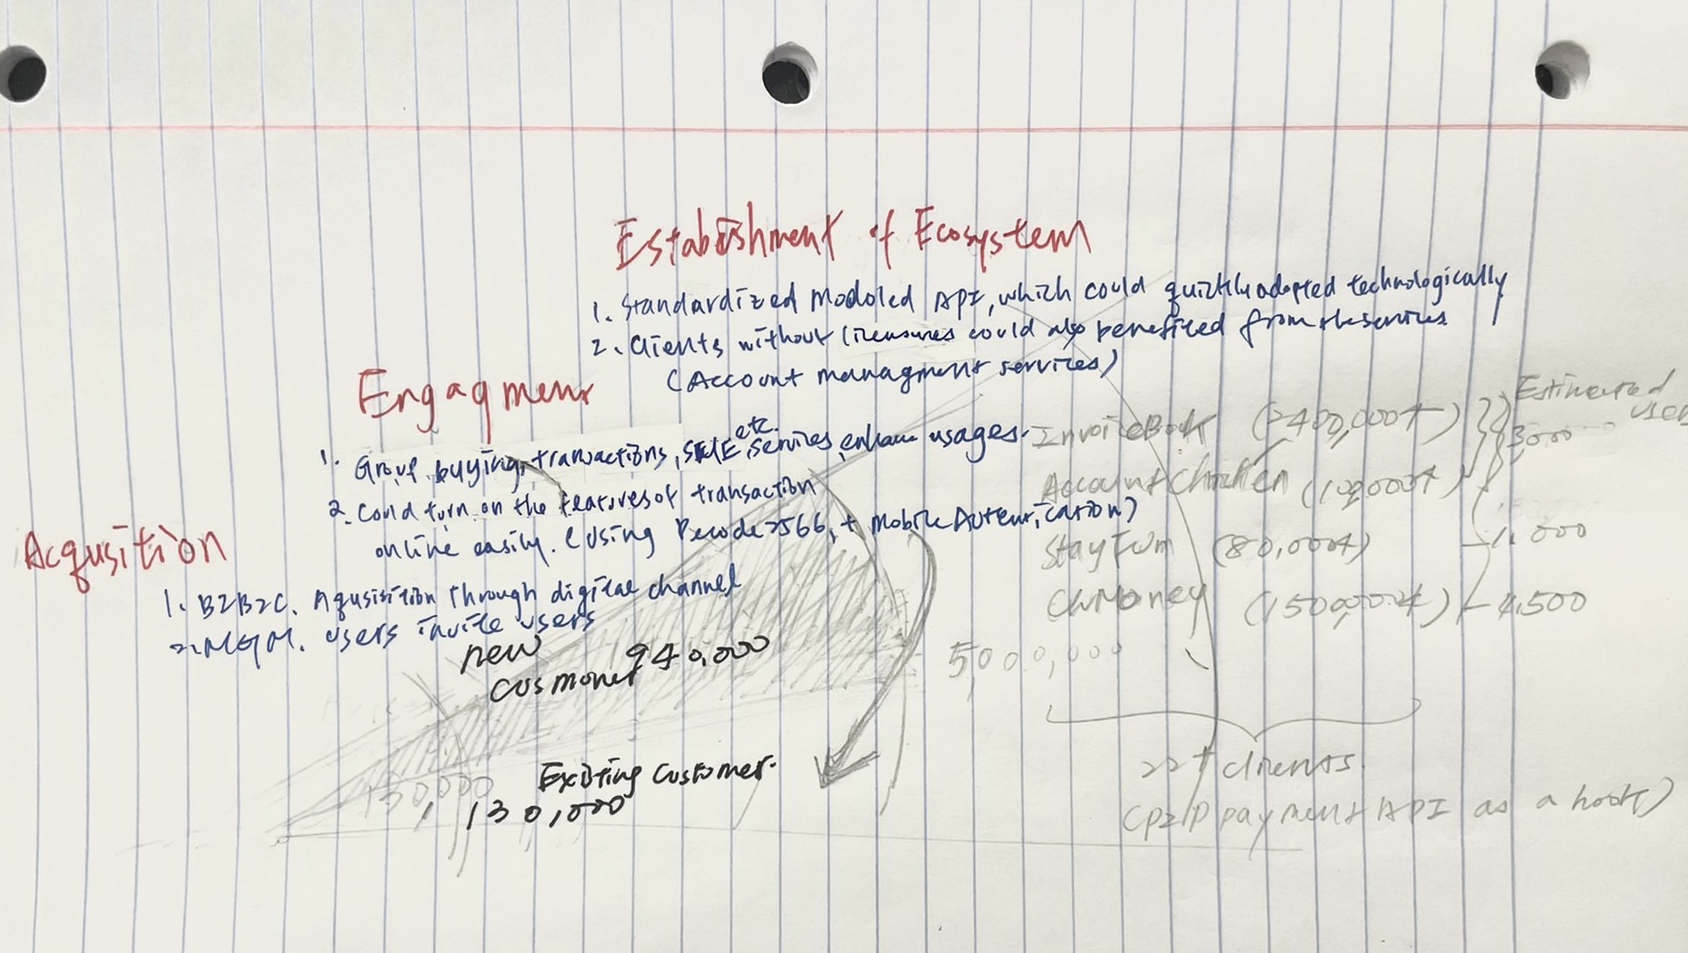 Establishment of Ecosystem
1. Standardized Moduled API, which could quickly adopted technologically
2. Clients without licensures could also benefited from the services
(Account managment services)
Engagment
1. Group buying, transactions, SME etc. services, enhance usages.
2. Could turn on the features of transaction
online easily. (Using Pcode2566, + Mobile Autentication)
Acqusition
1. B2B2C. Aqusisition through digital channel
2. MGM. users invite users
new
cusmoner 940,000
Existing Customer.
130,000
130,000
InvoiceBook (>400,000+)
Account Chicken (100,000+)
StayFun (80,000+)
CWMoney (150,000+)
Estimated users
3,000
1,000
4,500
5,000,000
22+ clients
(P2P payment API as a hook)